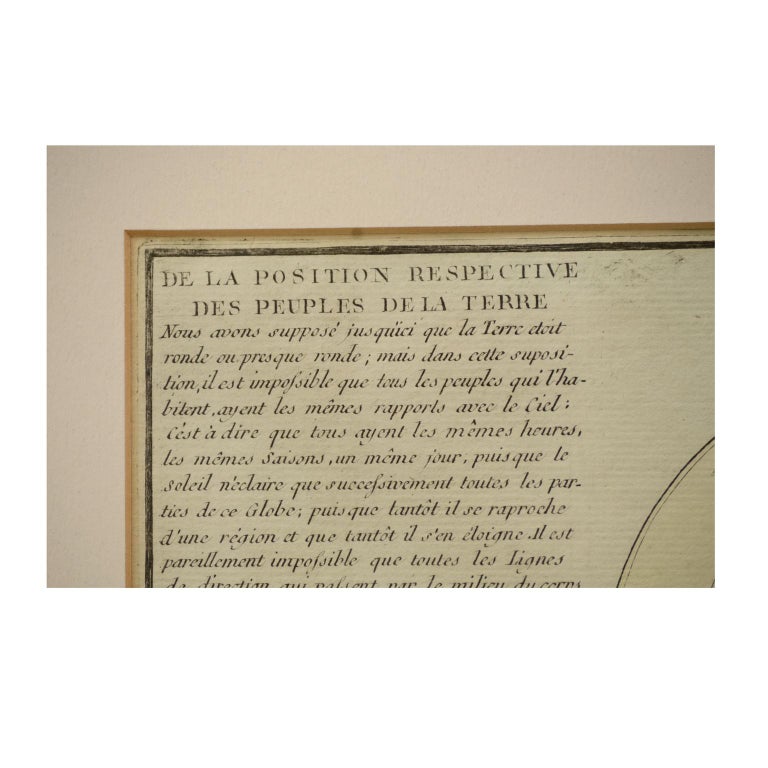 DE LA POSITION RESPECTIVE
DES PEUPLES DE LA TERRE
Nous avons supposé jusqu'ici que la Terre etoit
ronde ou presque ronde; mais dans cette suposi-
tion, il est impoſsible que tous les peuples qui l'ha-
bitent, ayent les mêmes rapports avec le Ciel;
C'est à dire que tous ayent les mêmes heures,
les mêmes Saisons, un même jour, puis que le
Soleil n'eclaire que succeſsivement toutes les par-
ties de ce Globe; puis que tantôt il se raproche
d'une région et que tantôt il s'en éloigne. Il est
pareillement impoſsible que toutes les Lignes
de direction qui paſsent par le milieu du corps